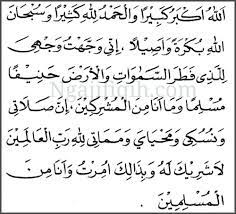 اَللهُ اَكْبَرُ كَبِيْرًا وَالْحَمْدُ لِلّٰهِ كَثِيْرًا وَسُبْحَانَ
اللهِ بُكْرَةً وَاَصِيْلًا . اِنِّى وَجَّهْتُ وَجْهِيَ
لِلَّذِى فَطَرَ السَّمٰوَاتِ وَالْاَرْضَ حَنِيْفًا
مُسْلِمًا وَمَا اَنَا مِنَ الْمُشْرِكِيْنَ . اِنَّ صَلَاتِى
وَنُسُكِى وَمَحْيَايَ وَمَمَاتِى لِلّٰهِ رَبِّ الْعَالَمِيْنَ
لَاشَرِيْكَ لَهُ وَبِذَالِكَ اُمِرْتُ وَاَنَا مِنَ
الْمُسْلِمِيْنَ .